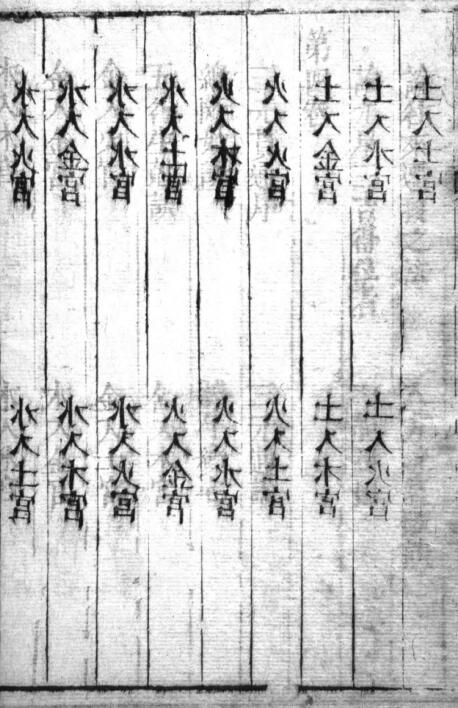 土入土宮
土入水宮
土入火宮
土入金宮
土入木宮
火入火宮
火入土宮
火入木宮
火入水宮
水入土宮
火入金宮
水入水宮
水入火宮
水入金宮
水入木宮
水入火宮
水入土宮